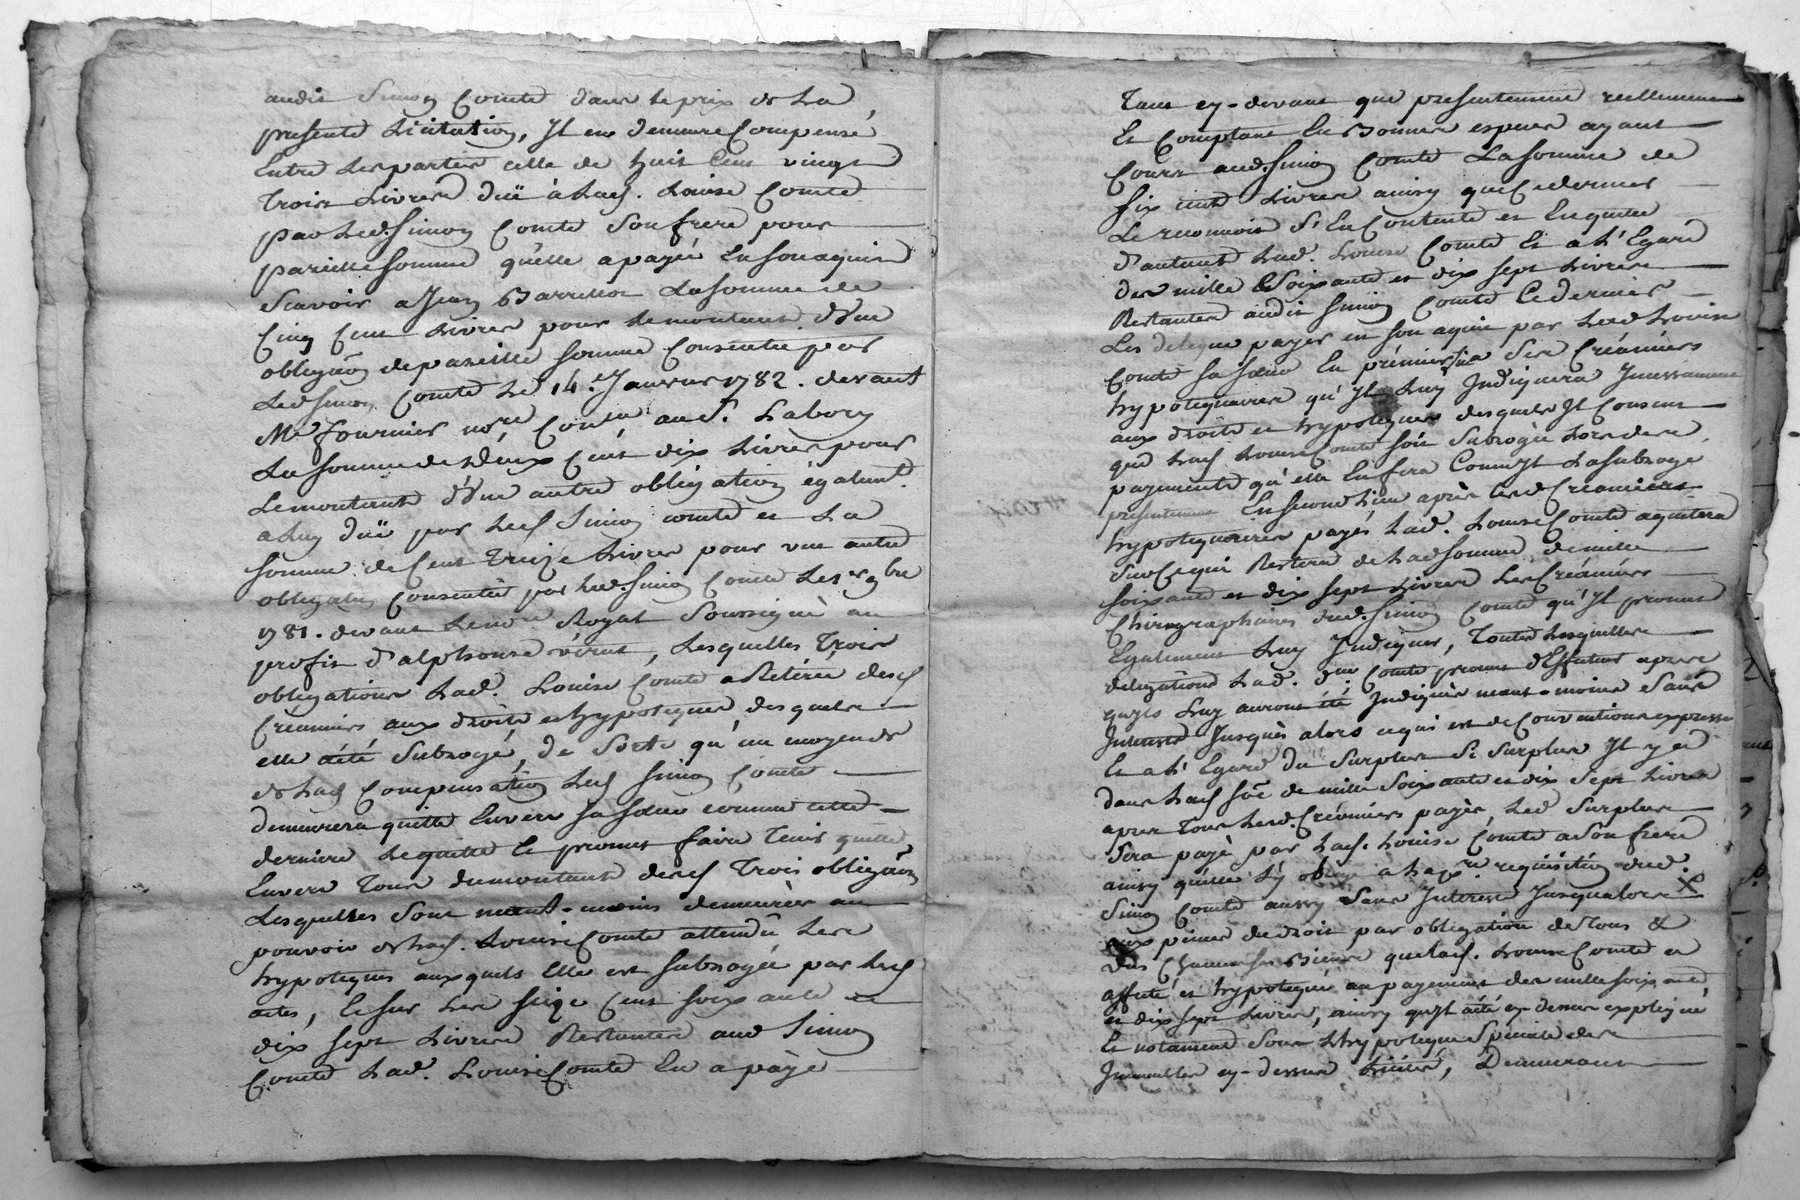 audit Simon Comte dans le prix de La
presente Licitation, Il en demeure Compensé
Entre Les parties celle de huit Cent vingt
Trois Livres düe à Lad. Louise Comte
par Led. Simon Comte Son frere pour
pareille somme qu'elle a payée En Son aquit
Scavoir a Jean Barrillot La somme de
Cinq Cent Livres pour Le montant d'Une
obligaõn de pareille somme Consentie par
Led. Simon Comte Le 14. Janvier 1782. devant
Me fournier nore aud. S. Labory
La somme de Deux Cent dix Livres pour
Le montant d'Une autre obligation égalemt.
a Luy düe par Led. Simon Comte et La
somme de Cent Treize Livres pour une autre
obligation Consentie par Led. Simon Comte Le 9bre
1781. devant Le nore Royal Soussigné au
profit d'alphonse, Lesquelles Trois
obligations Lad. Louise Comte a Retirée desd.
Créanciers aux droits et hypoteques desquels
elle a été Subrogé, de Sorte qu'au moyen de
de Lad. Compensation Led. Simon Comte
demeurera quitte Envers Sa Sœur comme cette
derniere Le quitte et promet faire Tenir quitte
Envers Tous du montant desd. Trois obligaõns
Lesquelles Sont neant-moins demeurées au
pouvoir de Lad. Louise Comte attendu Les
hypoteques auxquels Elle est Subrogée par Lesd.
actes, Et sur Les Seize Cent Soixante et
dix Sept Livres Restantes aud. Simon
Comte Lad. Louise Comte En a payé
Tant cy-devant que presentement reellement
Et Comptant En Bonnes especes ayant
Cours aud. Simon Comte La somme de
Six cent Livres ainsy que Ce dernier
Le reconnoit S'En Contente et En quitte
d'autant Lad. Louise Comte Et a L'Egard
des mille Soixante et dix Sept Livres
Restantes audit Simon Comte Ce dernier
Les delegue payer en Son aquit par Lad. Louise
Comte Sa Sœur En prémier Lieu Ses Créanciers
hypotequaires qu'Il Luy Indiquera Incessamment
aux droits et hypoteques desquels Il Consent
que Lad. Louise Comte Soit Subrogée Lors des
payements qu'elle En fera Comme Il La Subroge
presentement En Second Lieu après Lesd. Créanciers
hypotequaires payés Lad. Louise Comte aquittera
Sur Ce qui Restera de Lad. Somme de mille
Soixante et dix Sept Livres Les Créanciers
Chirographaires dud. Simon Comte qu'Il promet
Egalement Luy Indiquer, Toutes Lesquelles
delegations Lad. Comte promet d'Effectuer apres
qu'ils Luy auront été Indiqués neant-moins Sans
Interest Jusques alors ce qui est de Convention expresse
Et a L'Egard du Surplus Si Surplus Il y a
dans Lad. Sõe de mille Soixante et dix Sept Livres
apres Tous Lesd. Créanciers payés, Led. Surplus
Sera payé par Lad. Louise Comte a Son frere
ainsy qu'elle S'y oblige a La pre. requisition dud.
Simon Comte aussy Sans Interest Jusqu'alors X
aux peines de droit par obligation de Tous &
Ses Biens que Lad. Louise Comte a
affecté et hypotequé au payement des mille Soixante
et dix Sept Livres, ainsy qu'Il a été cy dessus expliqué
Et notament Sous L'hypoteque Speciale des
Immeubles cy-dessus Licités, Demeurant